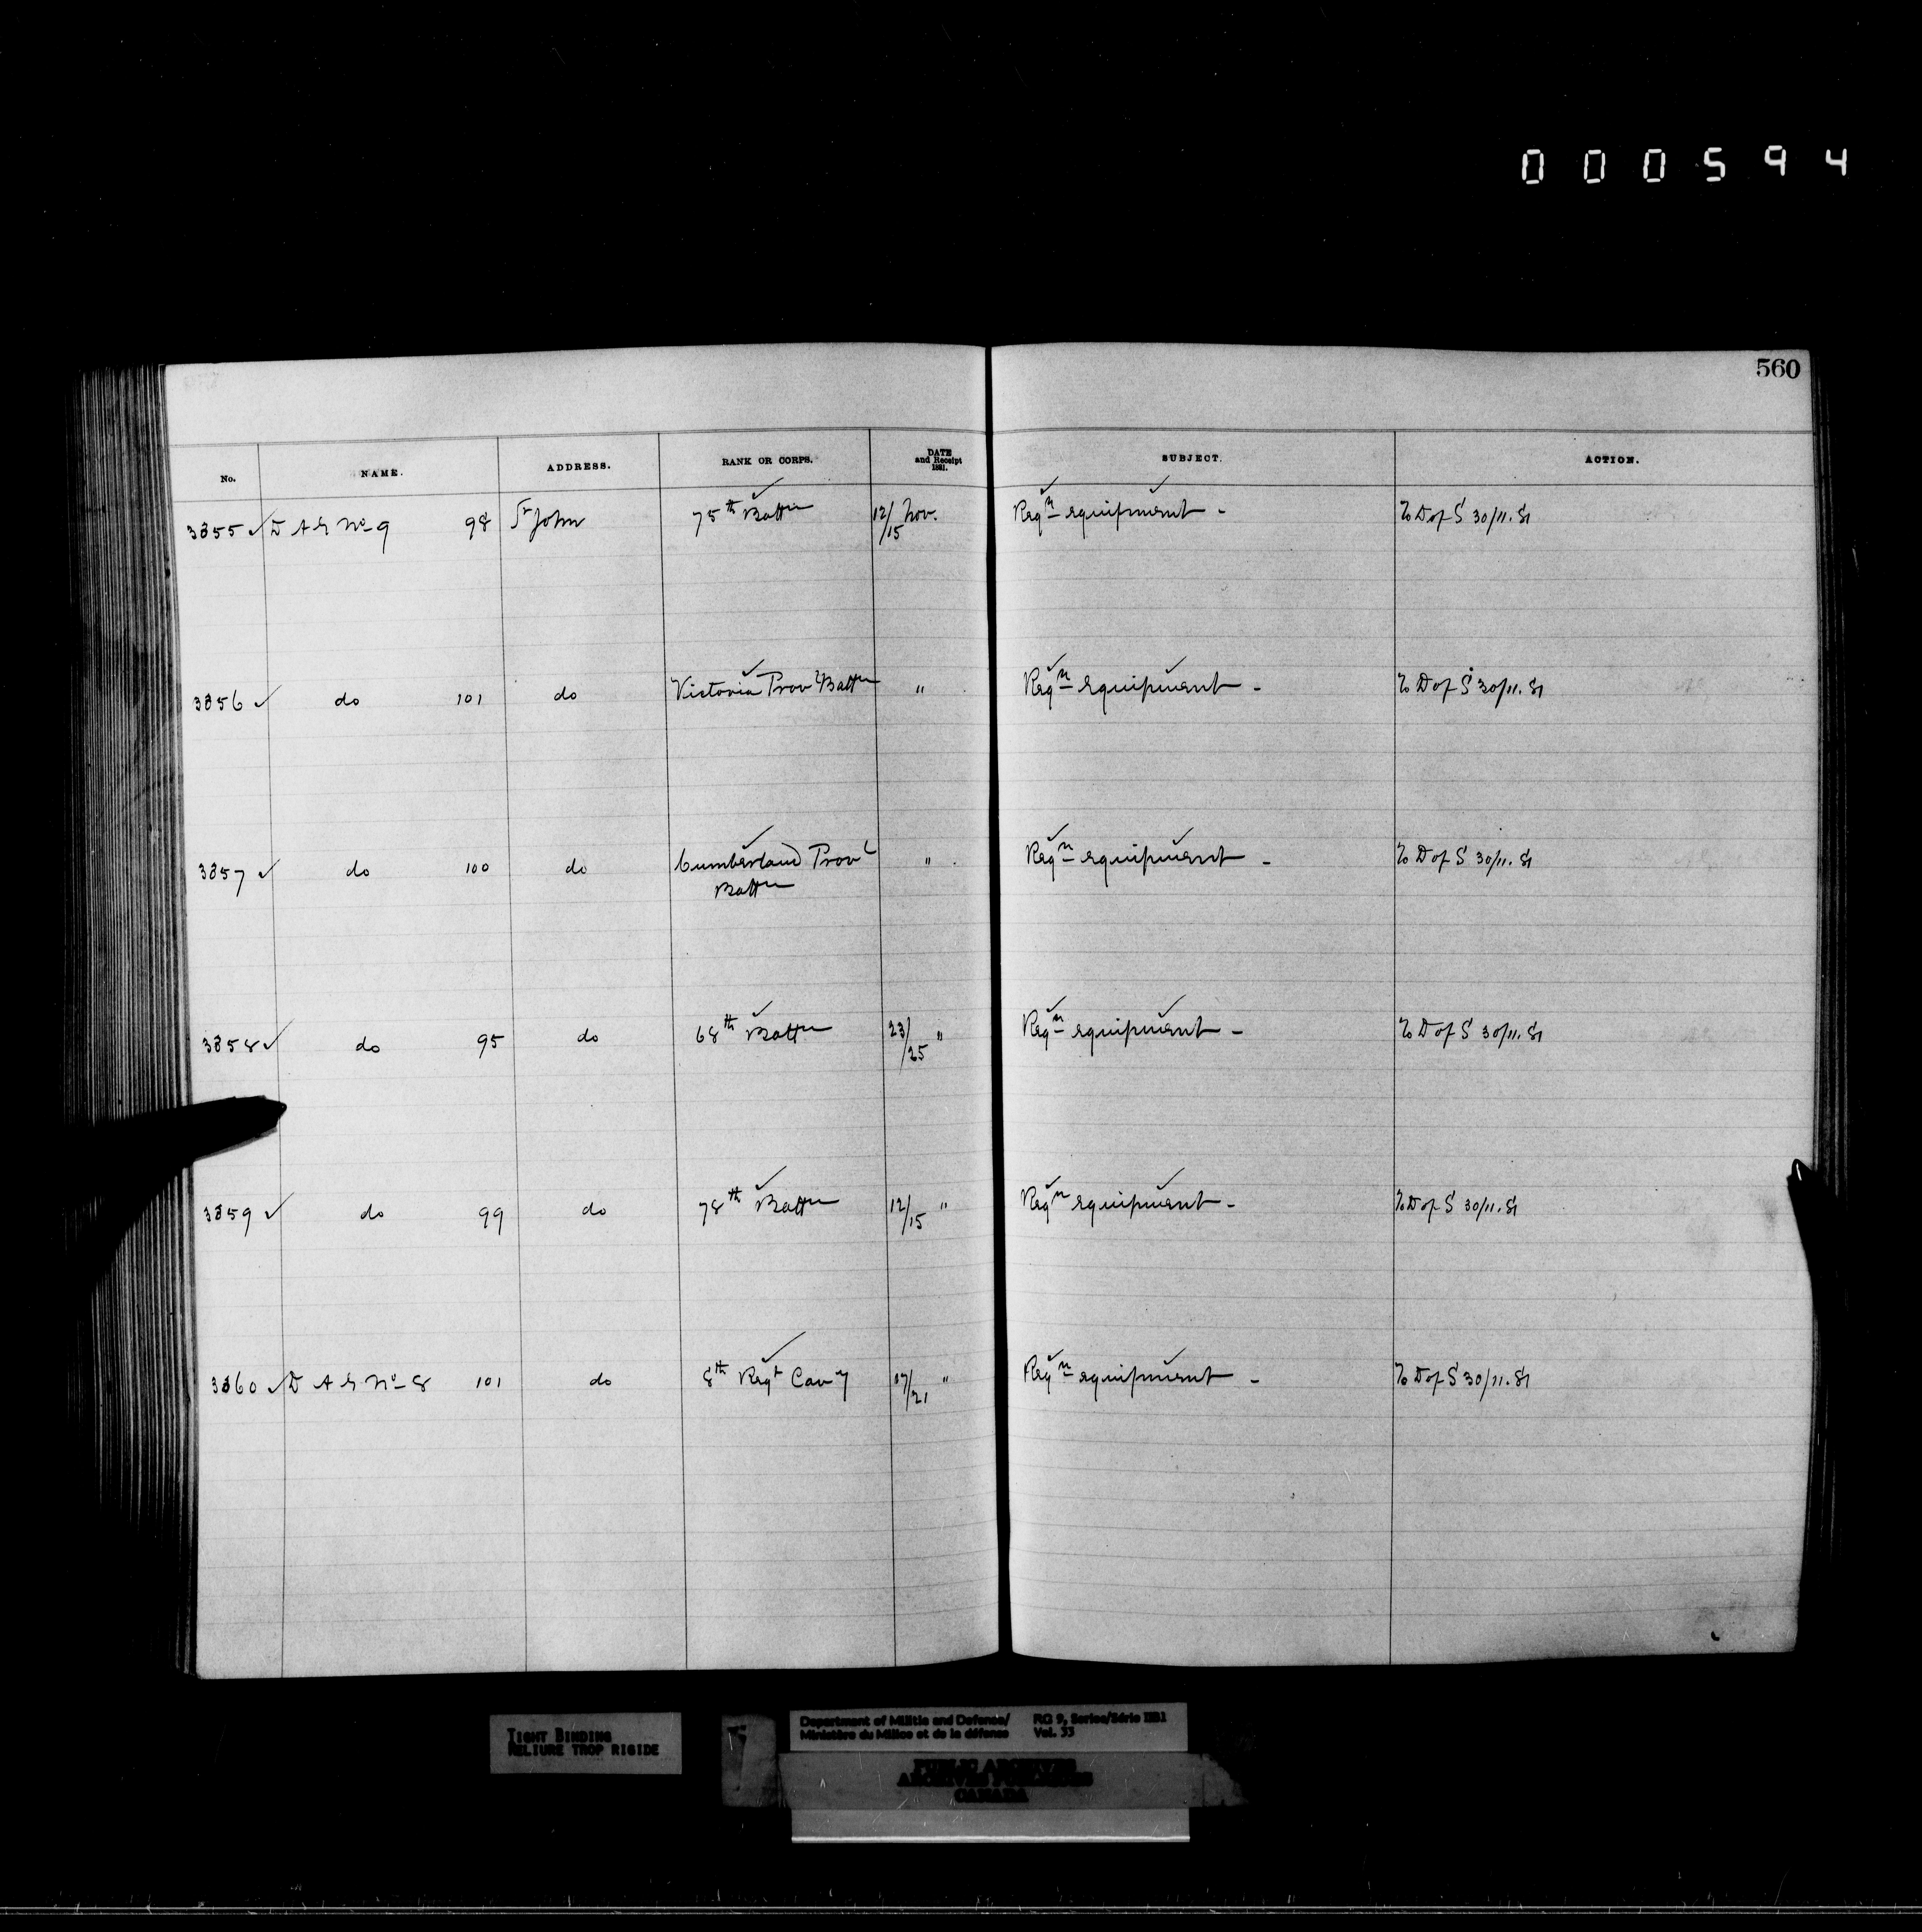 000594
560
No. NAME. ADDRESS. RANK OR CORPS. DATE and Receipt 1881. SUBJECT. ACTION.
3855 ✓ D A G No 9 98 St John 75th Battn 12/15 Nov. Reqn equipment - To D of S 30/11.81
3856 ✓ do 101 do Victoria Provl Battn " Reqn equipment - To D of S 30/11.81
3857 ✓ do 100 do Cumberland Provl Battn " Reqn equipment - To D of S 30/11.81
3858 ✓ do 95 do 68th Battn 23/25 " Reqn equipment - To D of S 30/11.81
3859 ✓ do 99 do 78th Battn 12/15 " Reqn equipment - To D of S 30/11.81
3860 ✓ D A G No 8 101 do 8th Regt Cavy 17/21 " Reqn equipment - To D of S 30/11.81
TIGHT BINDING
RELIURE TROP RIGIDE
Department of Militia and Defence/ RG 9, Series/Série IIB1
Ministère du Milice et de la défense Vol. 33
PUBLIC ARCHIVES
ARCHIVES PUBLIQUES
CANADA